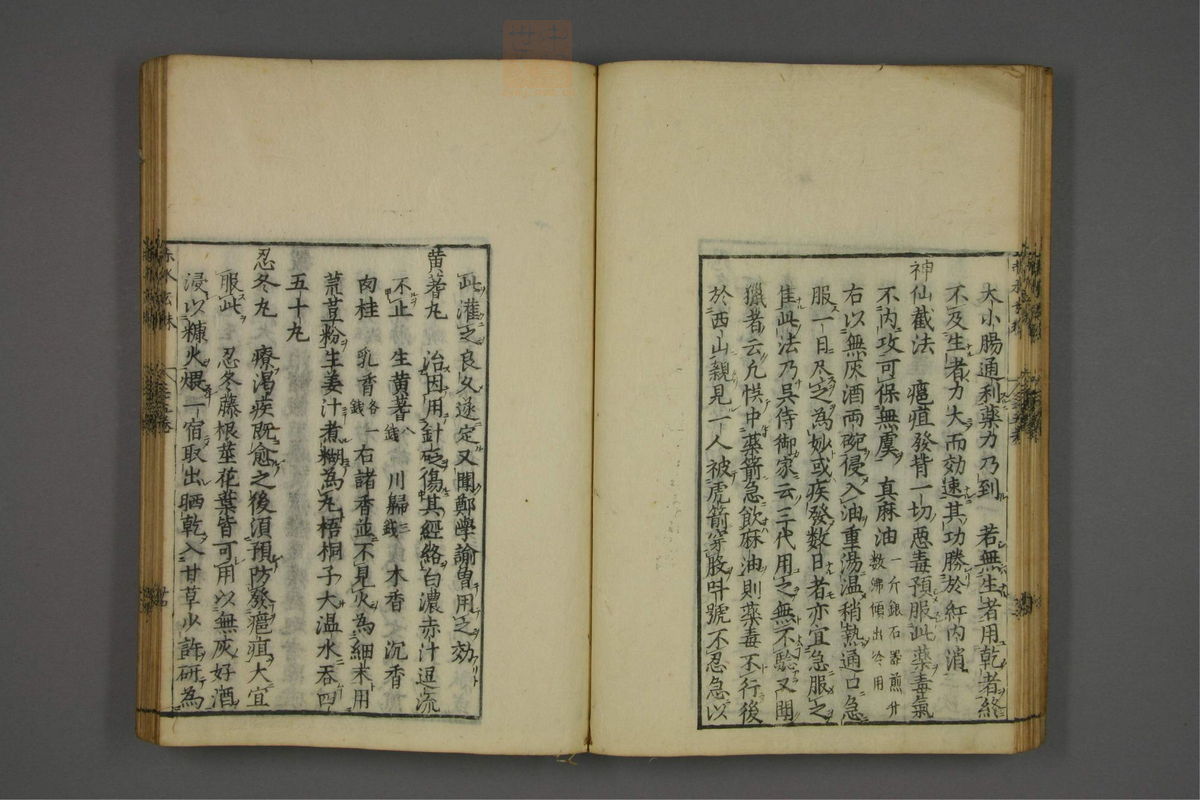 大小腸通利藥力乃到　若無生者用乾者終
不及生者力大而効速其功勝於紅內消
神仙截法　瘟疽發背一切惡毒預服此藥毒氣
不內攻可保無虞　真麻油一斤銀石器煎數沸傾出冷用
右以無灰酒兩碗侵入油重湯温稍熱通口急
服一日尽之為妙或疾發数日者亦宜急服之
此法乃吳侍御家云三代用之無不驗又聞
獵者云凢悞中藥箭急飲麻油則藥毒不行後
於西山親見一人被虎箭穿股呌號不忍急以
此灌之良久遂定又聞鄭學諭曽用之効
黄蓍丸　治因用針砭傷其經絡白濃赤汁逗流
不止　生黄蓍八錢　川歸三錢　木香　沉香
肉桂　乳香各一錢　右諸香並不見火為細末用
荒荳粉生姜汁煮糊為丸梧桐子大温水吞四
五十丸
忍冬丸　療渴疾既愈之後湏預防發瘟疽大宜
服此　忍冬藤根莖花葉皆可用以無灰好酒
浸以糠火煨一宿取出晒乾入甘草少許研為